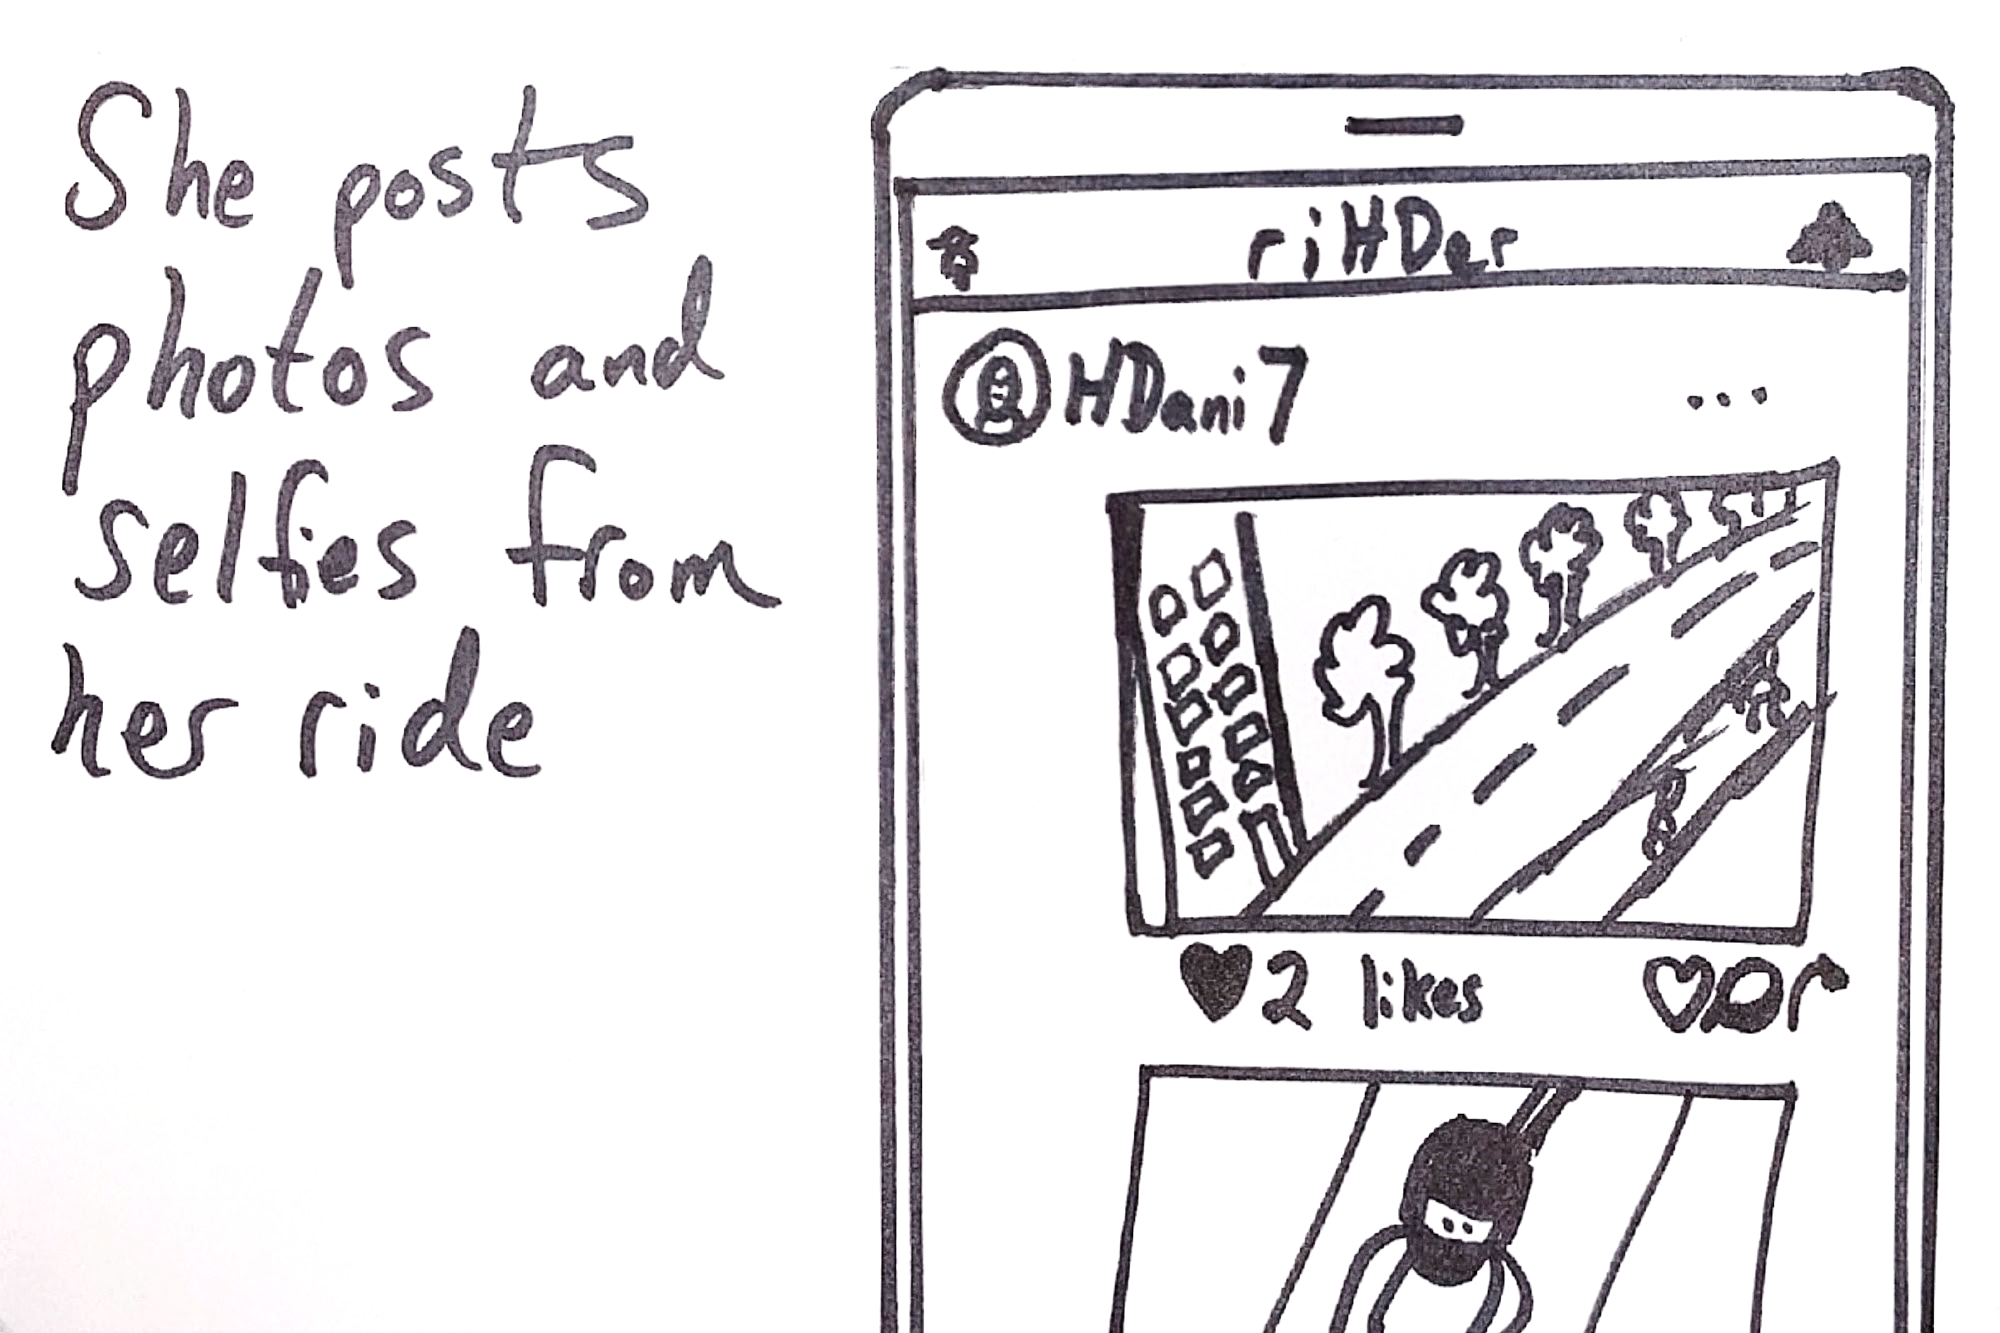 She posts
photos and
selfies from
her ride
riHDer
HDani7
...
2 likes